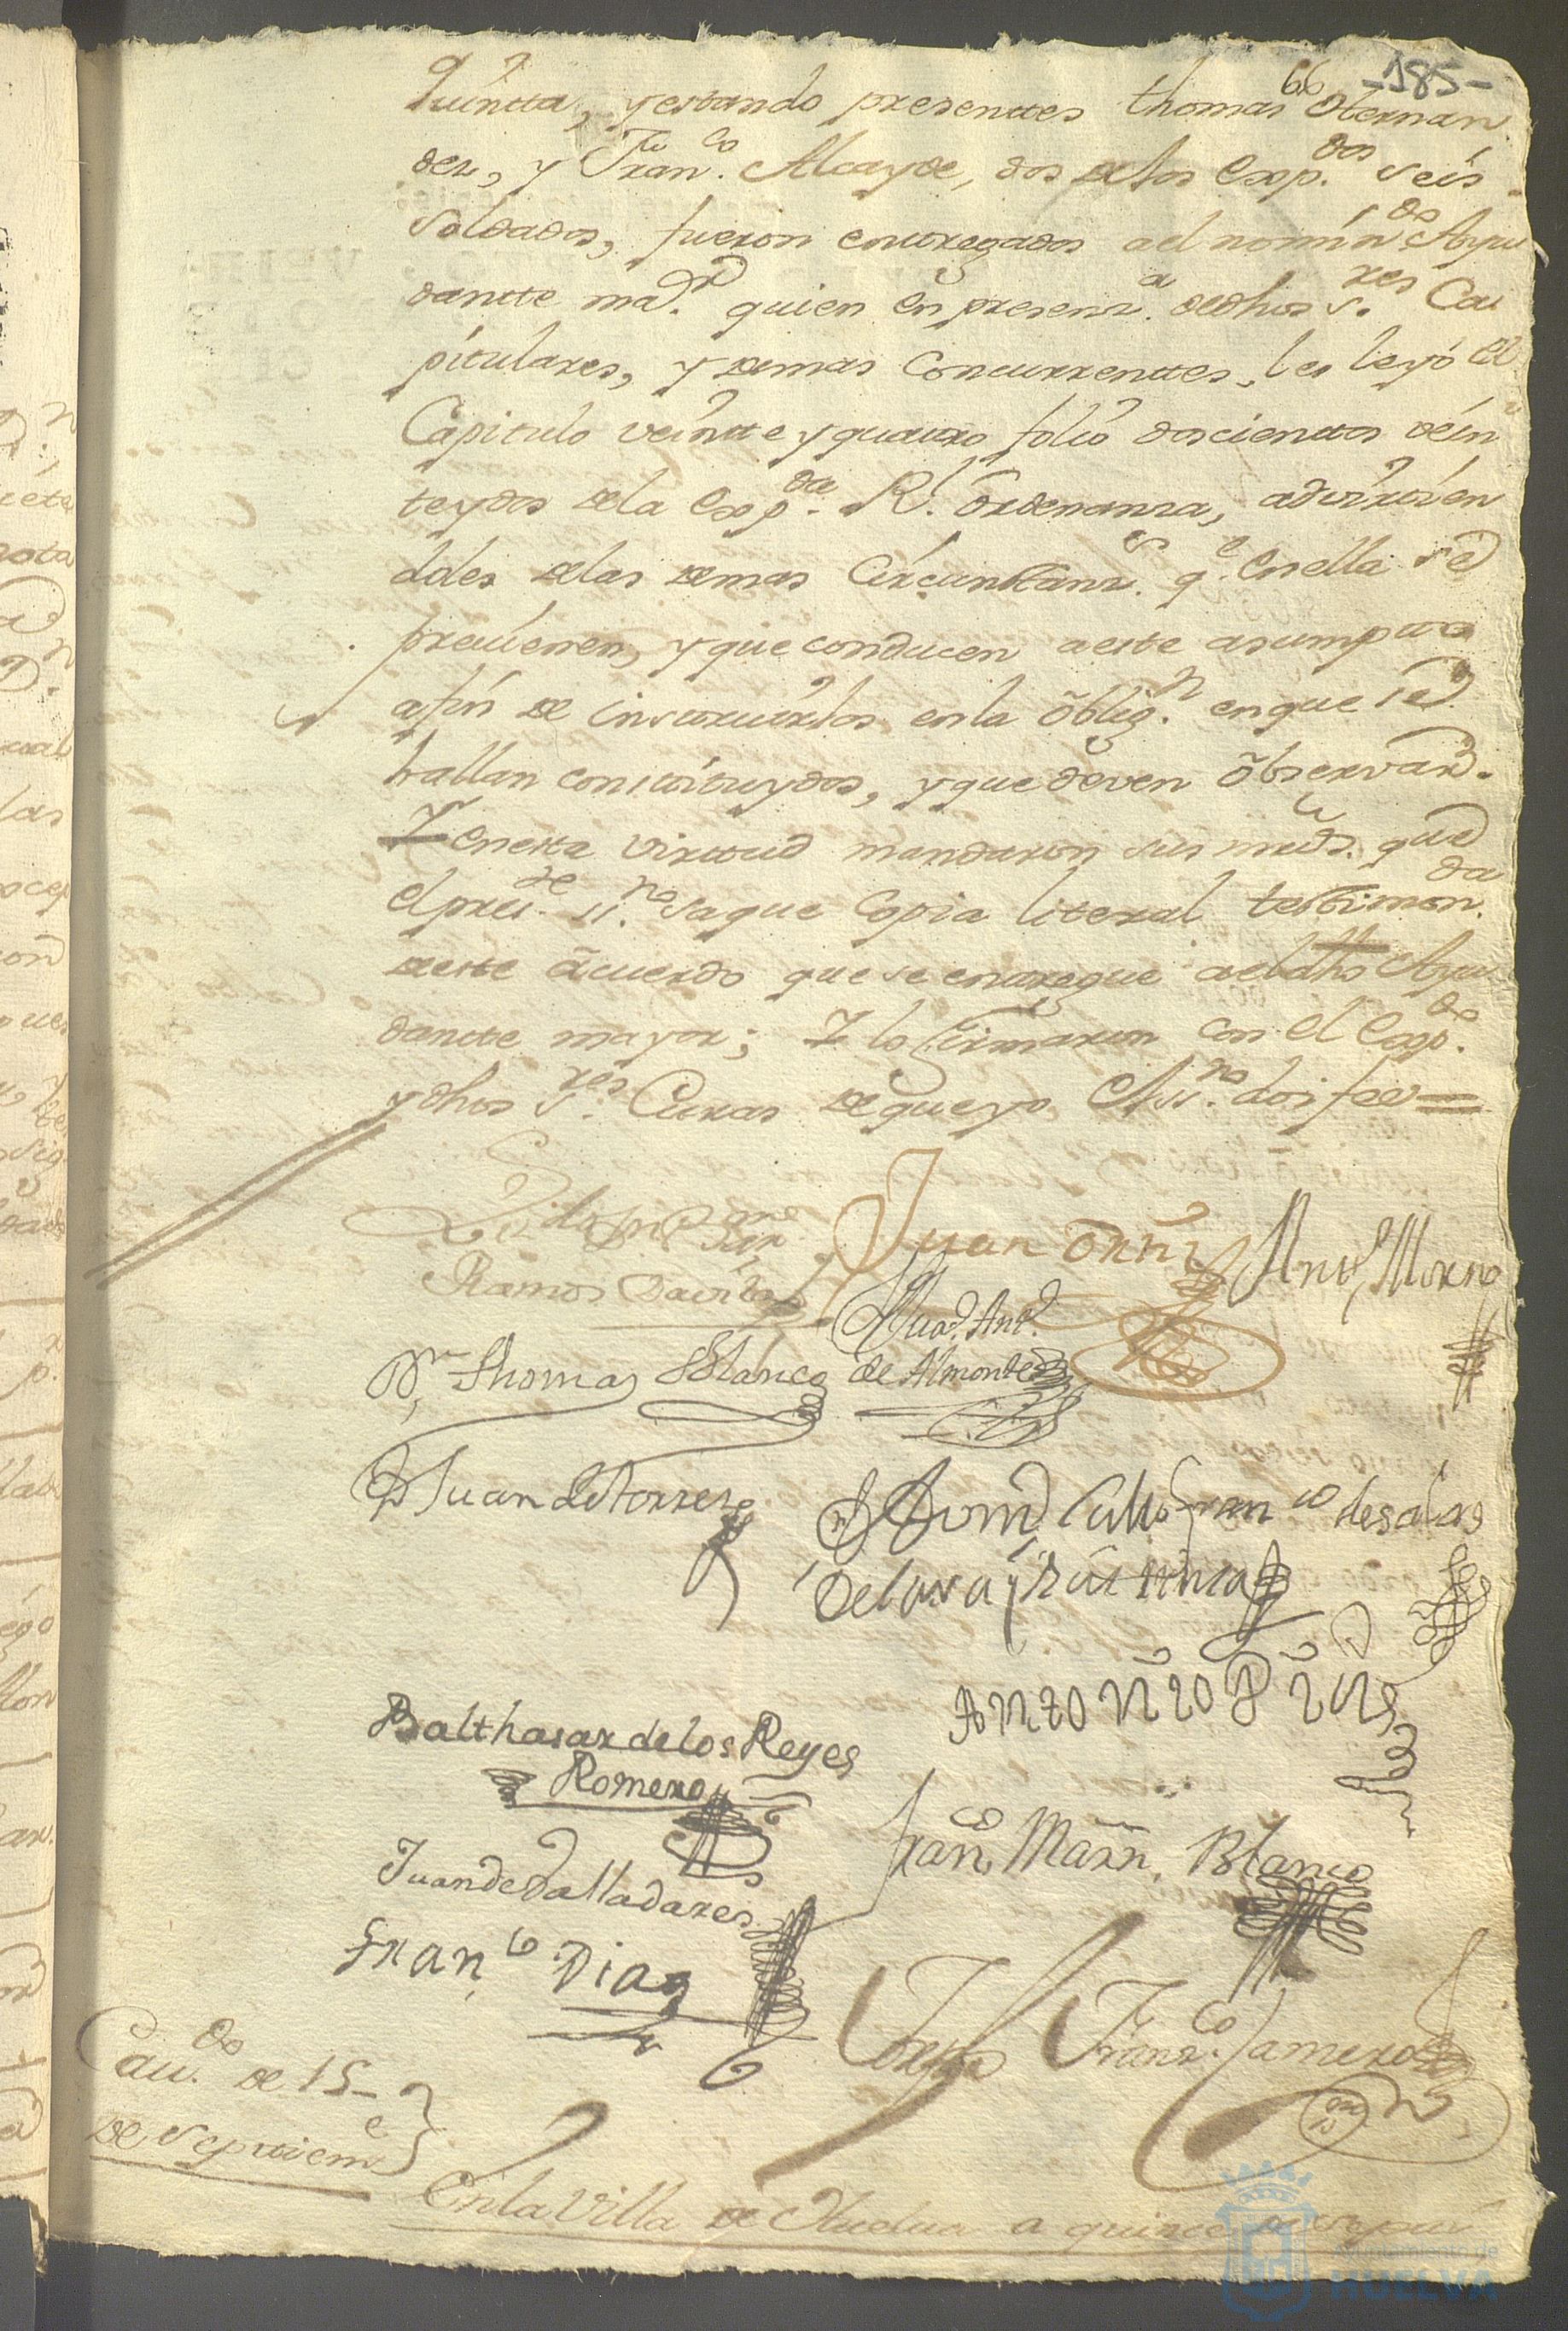 66 -185-
Quintta, y estando presenttes Thomas Hernan
dez, y Fran.co Alcayde, dos de los Exp.dos seis
soldados, fueron enttregados a el nomin.do Ayu
dantte ma.r quien en presenz.a de dhos S.res Ca
pitulares, y demas Concurrenttes, les leyó el
Capitulo veintte y quattro folio doscienttos vein
te y dos de la Exp.da R.l Ordenanza, advirtien
doles de las demas Circunstanz.s q.e en ella se
previenen, y que conducen a este asumpto
a fin de instruirlos en la oblig.n en que se
hallan constituydos, y que deven observar.
Y en esta virttud mandaron sus mrds. que
el pres.te ss.no saque Copia literal testimon.da
de este acuerdo que se entregue a el dho Ayu
dantte mayor; Y lo firmaron con el Exp.do
y dhos S.res Curas de que yo el ss.no doi fee=
Ramos Davila
Juan Ortiz
Antt.o Moreno
Juan Antt.o
de Almonte
D.n Thomas Blanco
D Juan de Torres
Fran.co de salas
de Lara y
Antonio
Balthasar de los Reyes
Romero
Fran.co Marn. Blanco
Juan de Valladares
Fran.co Diaz
Joseph Franz.co Jamero
Cav.do de 15
de Septtiem.e
En la Villa de Huelva a quince de
Ayuntamiento de
HUELVA